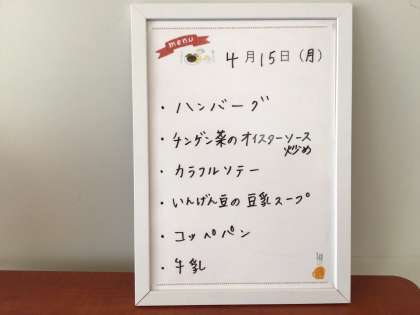 menu
4月15日(月)
・ハンバーグ
・チンゲン菜のオイスターソース
炒め
・カラフルソテー
・いんげん豆の豆乳スープ
・コッペパン
・牛乳